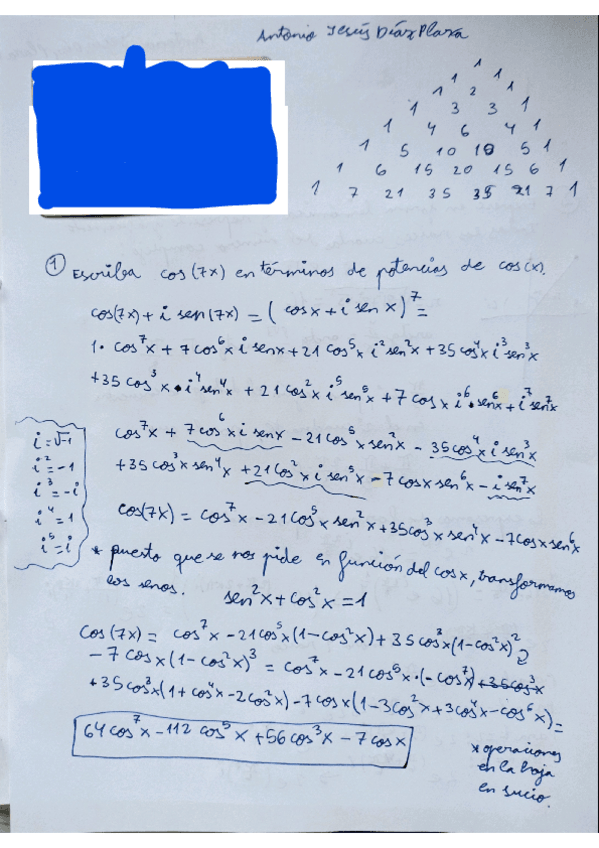 Antonio Jesús Díaz Plaza
1
1 1
1 2 1
1 3 3 1
1 4 6 4 1
1 5 10 10 5 1
1 6 15 20 15 6 1
1 7 21 35 35 21 7 1
① Escriba cos(7x) en términos de potencias de cos(x).
cos(7x) + i sen(7x) = (cosx + i sen x)⁷ =
1· cos⁷x + 7cos⁶x i senx + 21 cos⁵x i² sen²x + 35 cos⁴x i³ sen³x
+35 cos³x · i⁴ sen⁴x + 21 cos²x i⁵ sen⁵x + 7 cosx i⁶ · sen⁶x + i⁷ sen⁷x
cos⁷x + 7cos⁶x i senx − 21cos⁵x sen²x − 35cos⁴x i sen³x
+35 cos³x sen⁴x + 21 cos²x i sen⁵x − 7cosx sen⁶x − i sen⁷x
i = √-1
i² = -1
i³ = -i
i⁴ = 1
i⁵ = i
cos(7x) = cos⁷x − 21cos⁵x sen²x + 35cos³x sen⁴x − 7cosx sen⁶x
* puesto que se nos pide en función del cosx, transformamos
los senos. sen²x + cos²x = 1
cos(7x) = cos⁷x − 21cos⁵x(1−cos²x) + 35cos³x(1−cos²x)²
− 7cosx(1−cos²x)³ = cos⁷x − 21cos⁵x·(−cos⁷x) +35cos³x
+35cos³x(1+cos⁴x−2cos²x) −7cosx(1−3cos²x+3cos⁴x−cos⁶x) =
64cos⁷x − 112 cos⁵x + 56cos³x − 7cosx
* operaciones
en la hoja
en sucio.